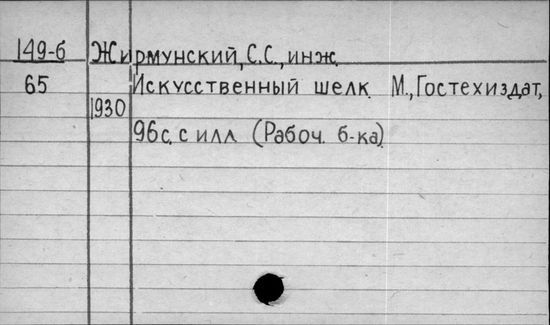 149-б Жирмунский, С.С., инж.
65 Искусственный шелк. М., Гостехиздат,
1930
96с. с илл. (Рабоч. б-ка)